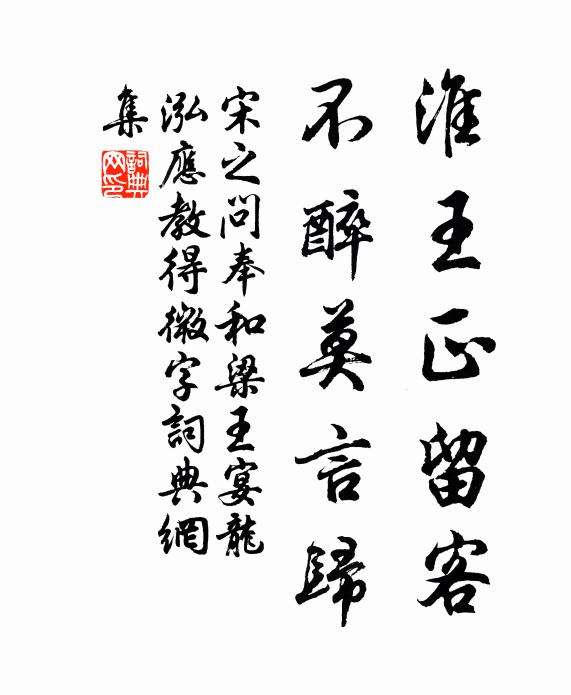 淮王正留客
不醉莫言歸
宋之問奉和梁王宴龍
泓應教得微字詞典網
集
詞典网印